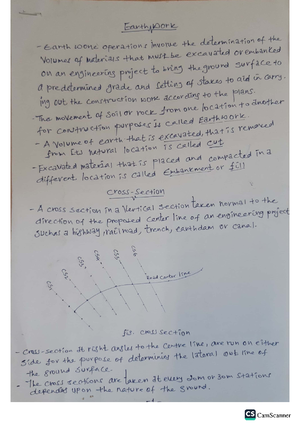 Earthwork
- Earth work operations involve the determination of the
Volumes of materials that must be excavated or embanked
on an engineering project to bring the ground surface to
a predetermined grade and setting of stakes to aid in carry-
ing out the construction work according to the plans.
- The movement of soil or rock from one location to another
for construction purposes is called Earthwork.
- A volume of earth that is excavated, that is removed
from its natural location is called cut
- Excavated material that is placed and compacted in a
different location is called Embankment or fill
Cross-Section
- A cross section is a Vertical section taken normal to the
direction of the proposed center line of an engineering project
such as a highway, railroad, trench, earthdam or canal.
CS1
CS2
CS3
CS4
CS5
CS6
Road center line
fig. cross section
- Cross-section at right angles to the centre line, are run on either
side for the purpose of determining the lateral out line of
the ground surface.
- The cross sections are taken at every 20m or 30m stations
depended upon the nature of the ground.
CS CamScanner